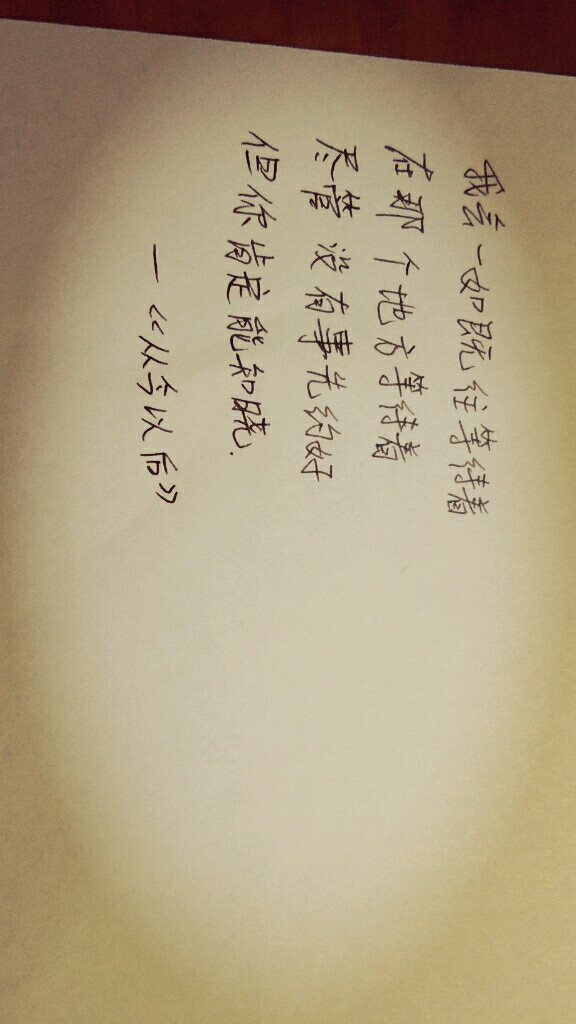 我会一如既往等待着
在那个地方等待着
尽管没有事先约好
但你肯定能知晓.
—《从今以后》